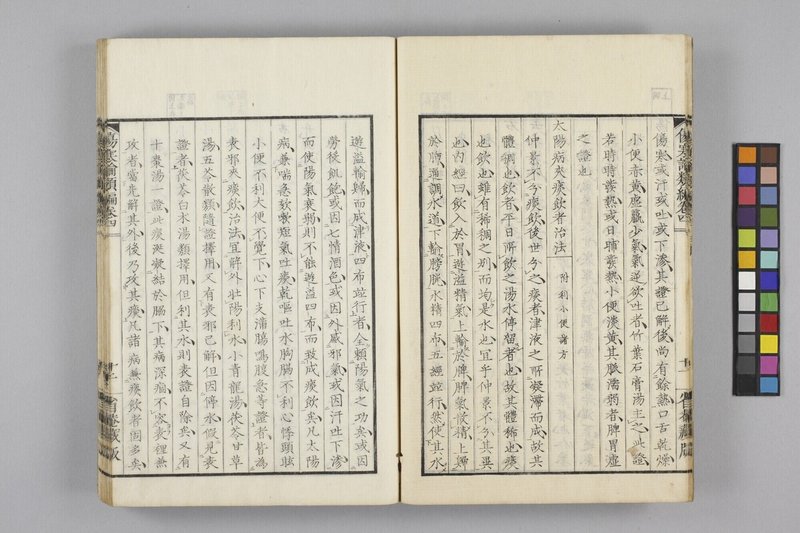 傷寒或汗或吐或下後其證已解後尚有餘熱口舌乾燥
小便赤黃虛羸少氣氣逆欲吐者竹葉石膏湯主之此證
若時時發熱或日晡發熱小便淡黃其脈濡弱者脾胃虛
之證也
太陽病夾痰飲者治法 附利小便諸方
仲景不分痰飲後世分之痰者津液之所凝滯而成故其
體稠也飲者平日所飲之湯水停留者也故其體稀也痰
也飲也雖有稀稠之別而均是水也宜乎仲景不分其異
也內經曰飲入於胃遊溢精氣上輸於脾脾氣散精上歸
於肺通調水道下輸膀胱水精四布五經並行然使其水
遊溢輸歸而成津液四布並行者全賴陽氣之功矣或因
勞倦飢飽或因七情酒色或因外感邪氣或因汗吐下滲
而使陽氣衰弱則不能遊溢四布而致成痰飲矣凡太陽
病兼喘急欬嗽短氣吐痰乾嘔吐水胸膈不利心悸頭眩
小便不利大便不覺下心下支滿腸鳴腹急等證者皆為
表邪夾痰飲治法宜解外壯陽利水小青龍湯茯苓甘草
湯五苓散類隨證擇用又有表邪已解但因停水假見表
證者茯苓白朮湯類擇用但利其水則表證自除矣又有
十棗湯一證此痰涎凝結於膈下其病深痼不容表裡兼
攻者當先解其外後乃攻其痰凡諸病兼痰飲者固多矣
傷寒論類編卷四
十一
省菴藏版